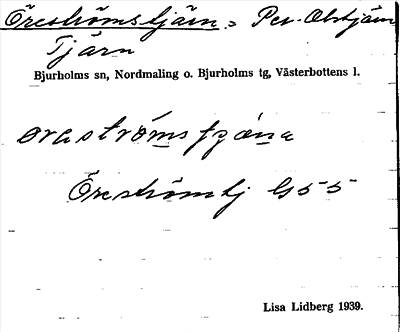 Öreströmstjärn = Per-Olstjärn
Tjärn
Bjurholms sn, Nordmaling o. Bjurholms tg, Västerbottens l.
Öreströmstj G55
Lisa Lidberg 1939.